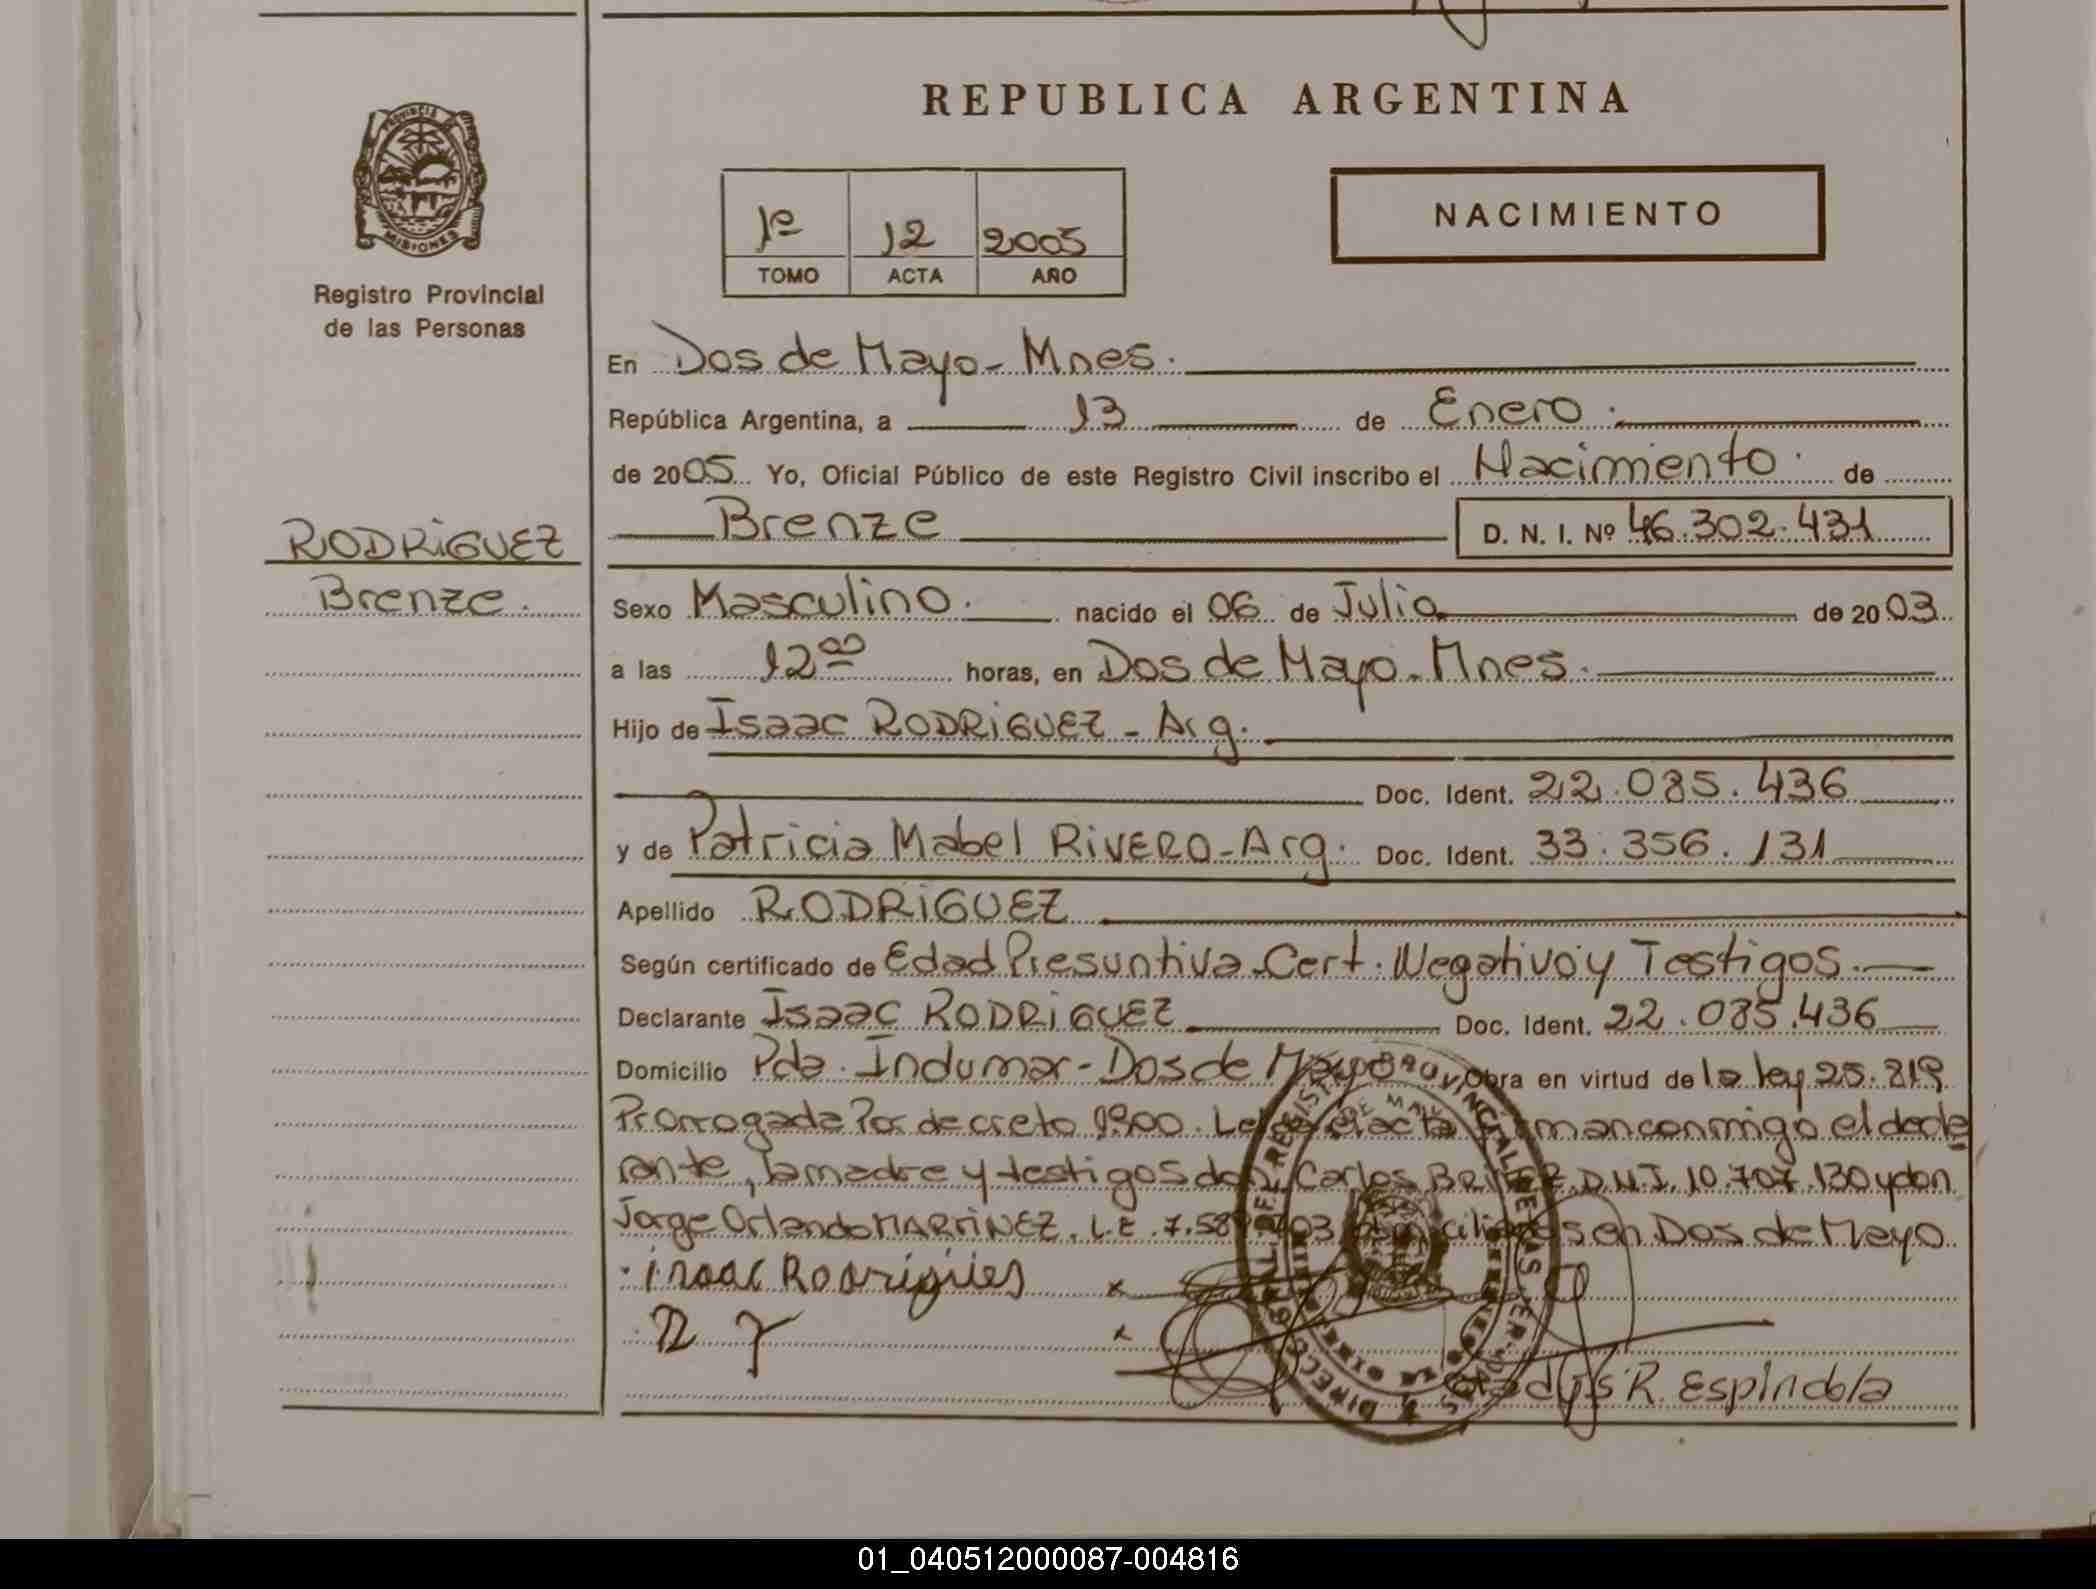 REPUBLICA ARGENTINA
PROVINCIA DE
MISIONES
Registro Provincial
de las Personas
1º 12 2005
TOMO ACTA AÑO
NACIMIENTO
En Dos de Mayo - Mnes.
República Argentina, a 13 de Enero.
de 2005 Yo, Oficial Público de este Registro Civil inscribo el Nacimiento. de
Brenze D. N. I. Nº 46.302.431
RODRiGUEZ
Brenze.
Sexo Masculino. nacido el 06 de Julio de 2003
a las 12 00 horas, en Dos de Mayo - Mnes.
Hijo de Isaac RODRiGUEZ - Arg.
Doc. Ident. 22.085.436
y de Patricia Mabel RiVERO - Arg. Doc. Ident. 33.356.131
Apellido RODRiGUEZ
Según certificado de Edad Presuntiva - Cert. Negativo y Testigos.
Declarante Isaac RODRiGUEZ Doc. Ident. 22.085.436
Domicilio Pda. Indumar - Dos de Mayo Obra en virtud de la ley 25.819
Prorrogada Por decreto 1900. el acta conmigo el decla
rante, la madre y testigos don Carlos D.N.I. 10.707.130 y don
Jorge Orlando MARTiNEZ. L.E. 7.58 en Dos de Mayo
isaac Rodrigues
Gladys R. Espindola
01_040512000087-004816